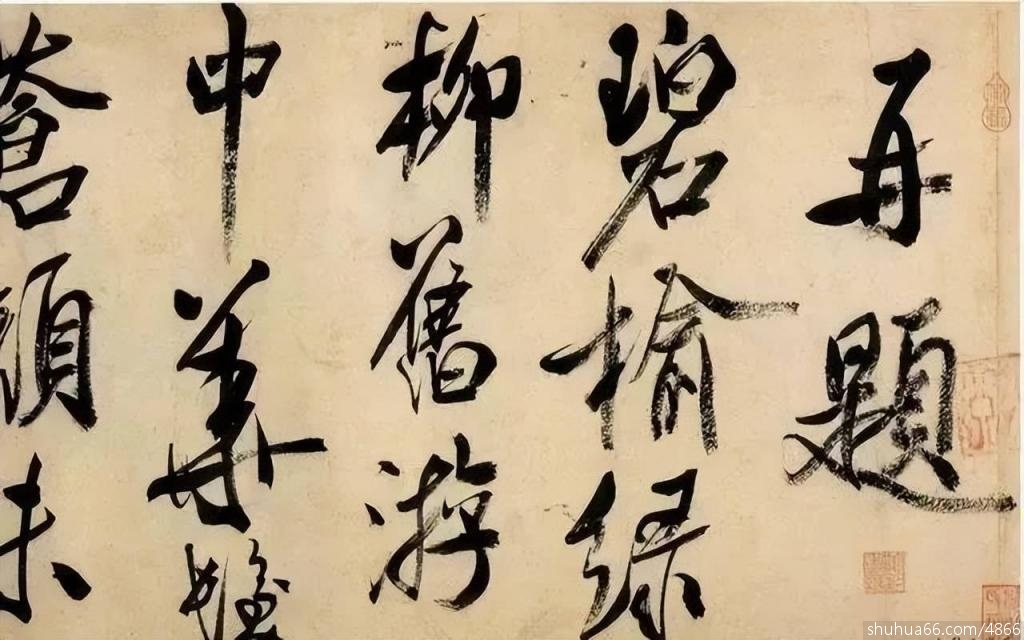 再題
碧榆綠
柳舊游
中華髮
蒼顏未
shuhua66.com/4866